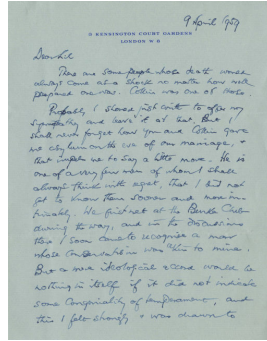 9 April 1959
3 KENSINGTON COURT GARDENS
LONDON W 8
There are some people whose death would
always come as a shock no matter how well
prepared one was. Collin was one of those.
Probably I should just write to offer my
sympathy and leave it at that. But I
shall never forget how you and Collin gave
me on the eve of our marriage, &
that impels me to say a little more. He is
one of a very few men of whom I shall
always think with regret, that I did not
get to know them sooner and more in-
timately. We first met at the
during the war, and in the discussions
there I soon came to recognise a man
whose conservatism was akin to mine.
But a mere ideological accord would be
nothing in itself if it did not indicate
some congeniality of temperament, and
this I felt strongly, & was drawn to